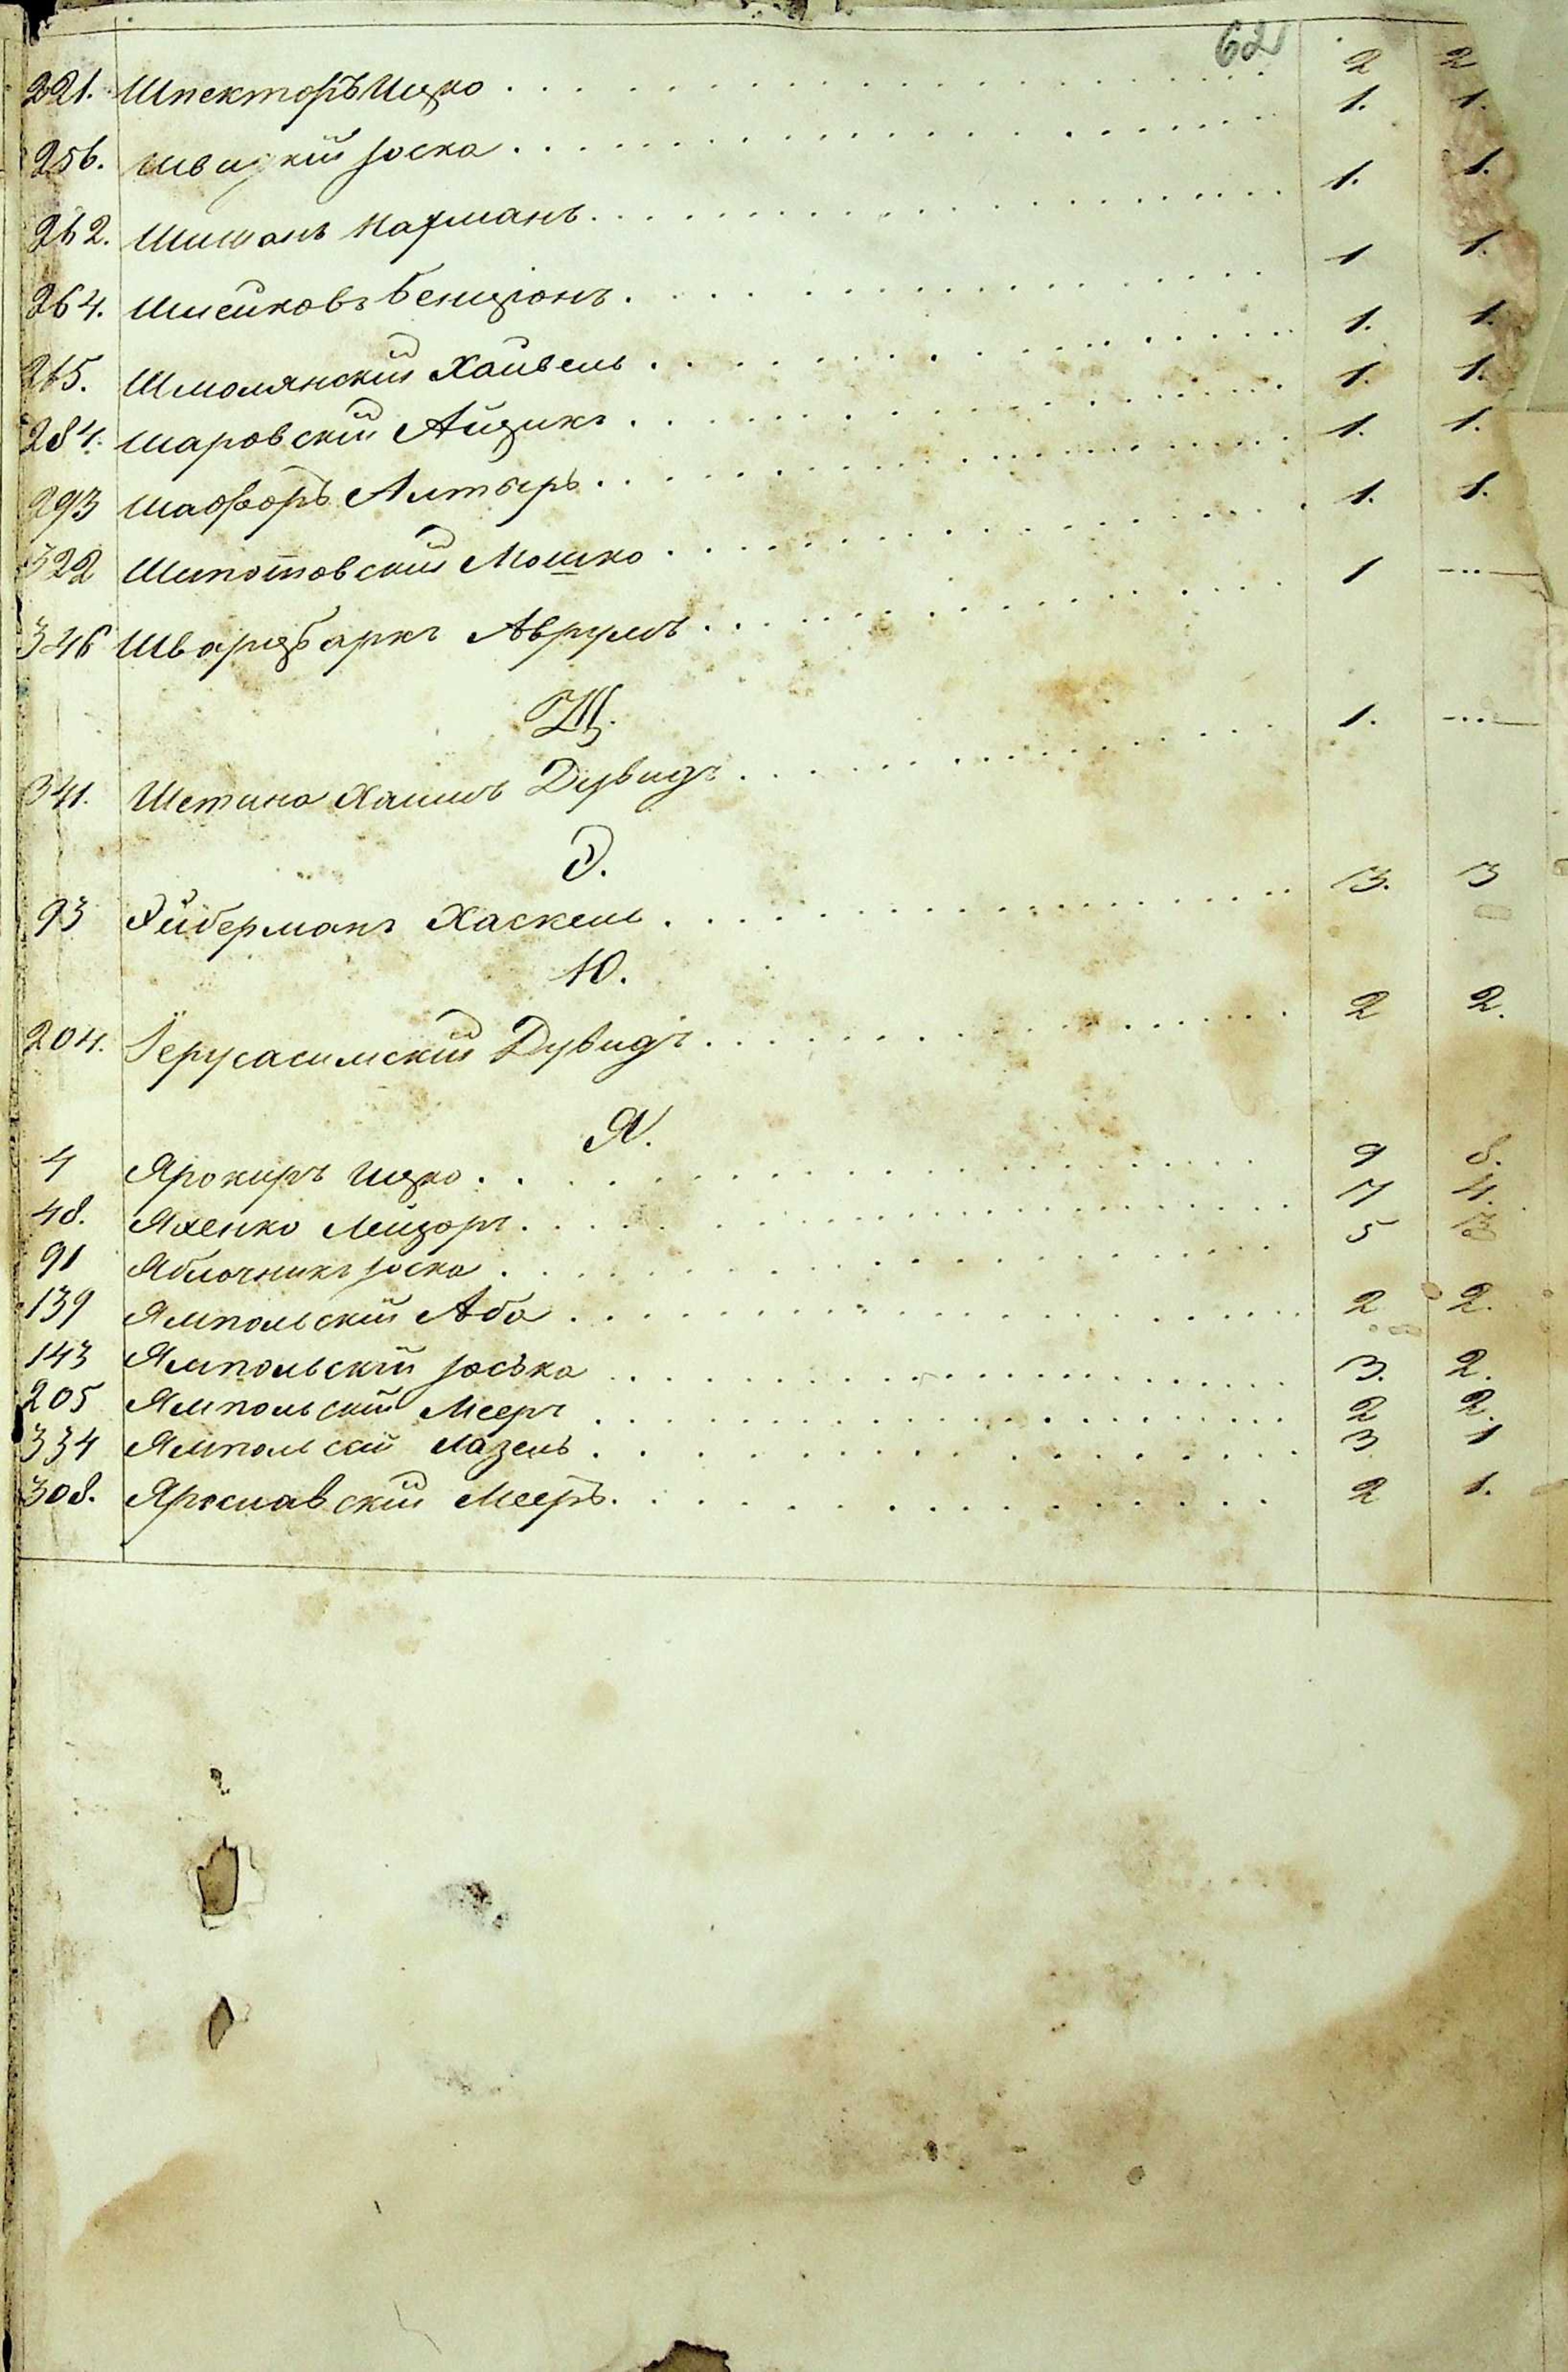 62
221. Шпекторъ Ицко . . . 2 2
256. Швидкій Іоска . . . 1. 1.
262. Шиманъ Нахманъ . . . 1. 1.
264. Шлейковъ Бенціонъ . . . 1 1.
265. Шмолянскій Хайвель . . . 1. 1.
284. Шаровскій Айзикъ . . . 1. 1.
293 Шафоръ Алтеръ . . . 1. 1.
322 Шипотовскій Мошко . . . 1. 1.
346 Шварцбаркъ Аврумъ . . . 1 —
Щ.
341. Щетина Хаимъ Дувидъ . . . 1. —
Э.
93 Эйберманъ Хаскель . . . 3. 3
Ю.
204. Іерусасимскій Дувидъ . . . 2 2.
Я.
4 Ярокиръ Ицко . . . 9 8.
48. Яхенко Лейзоръ . . . 7 4.
91 Яблочникъ Іоска . . . 5 3
139 Ямпольскій Аба . . . 2 2.
143 Ямпольскій Іоська . . . 3. 2.
205 Ямпольскій Мееръ . . . 2 2.
334 Ямпольскій Лазель . . . 3 1
308. Ярославскій Мееръ . . . 2 1.